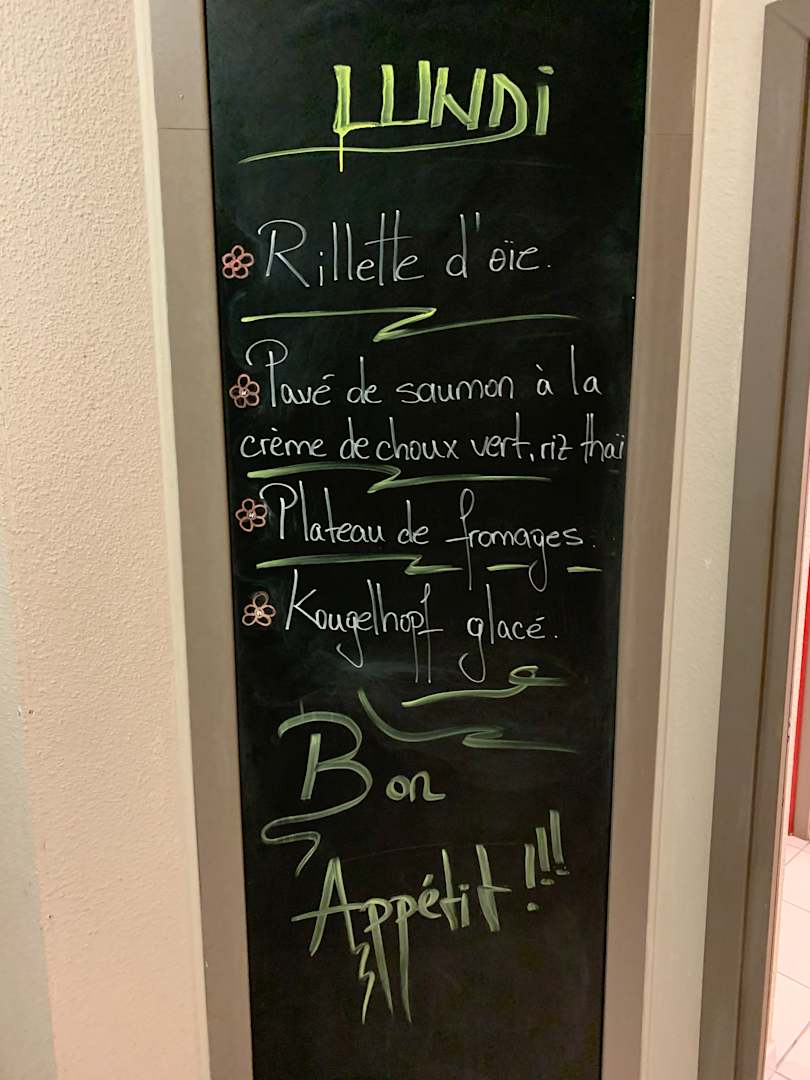 LUNDi
Rillette d'oïe.
Pavé de saumon à la
crème de choux vert, riz thaï
Plateau de fromages.
Kougelhopf glacé.
Bon
Appétit !!!